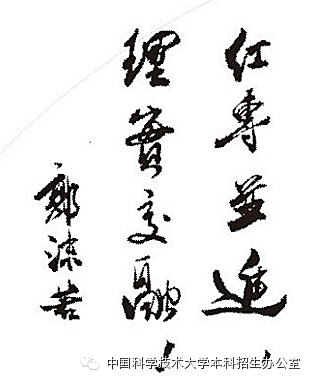 红專並進，
理實交融！
郭沫若
中国科学技术大学本科招生办公室